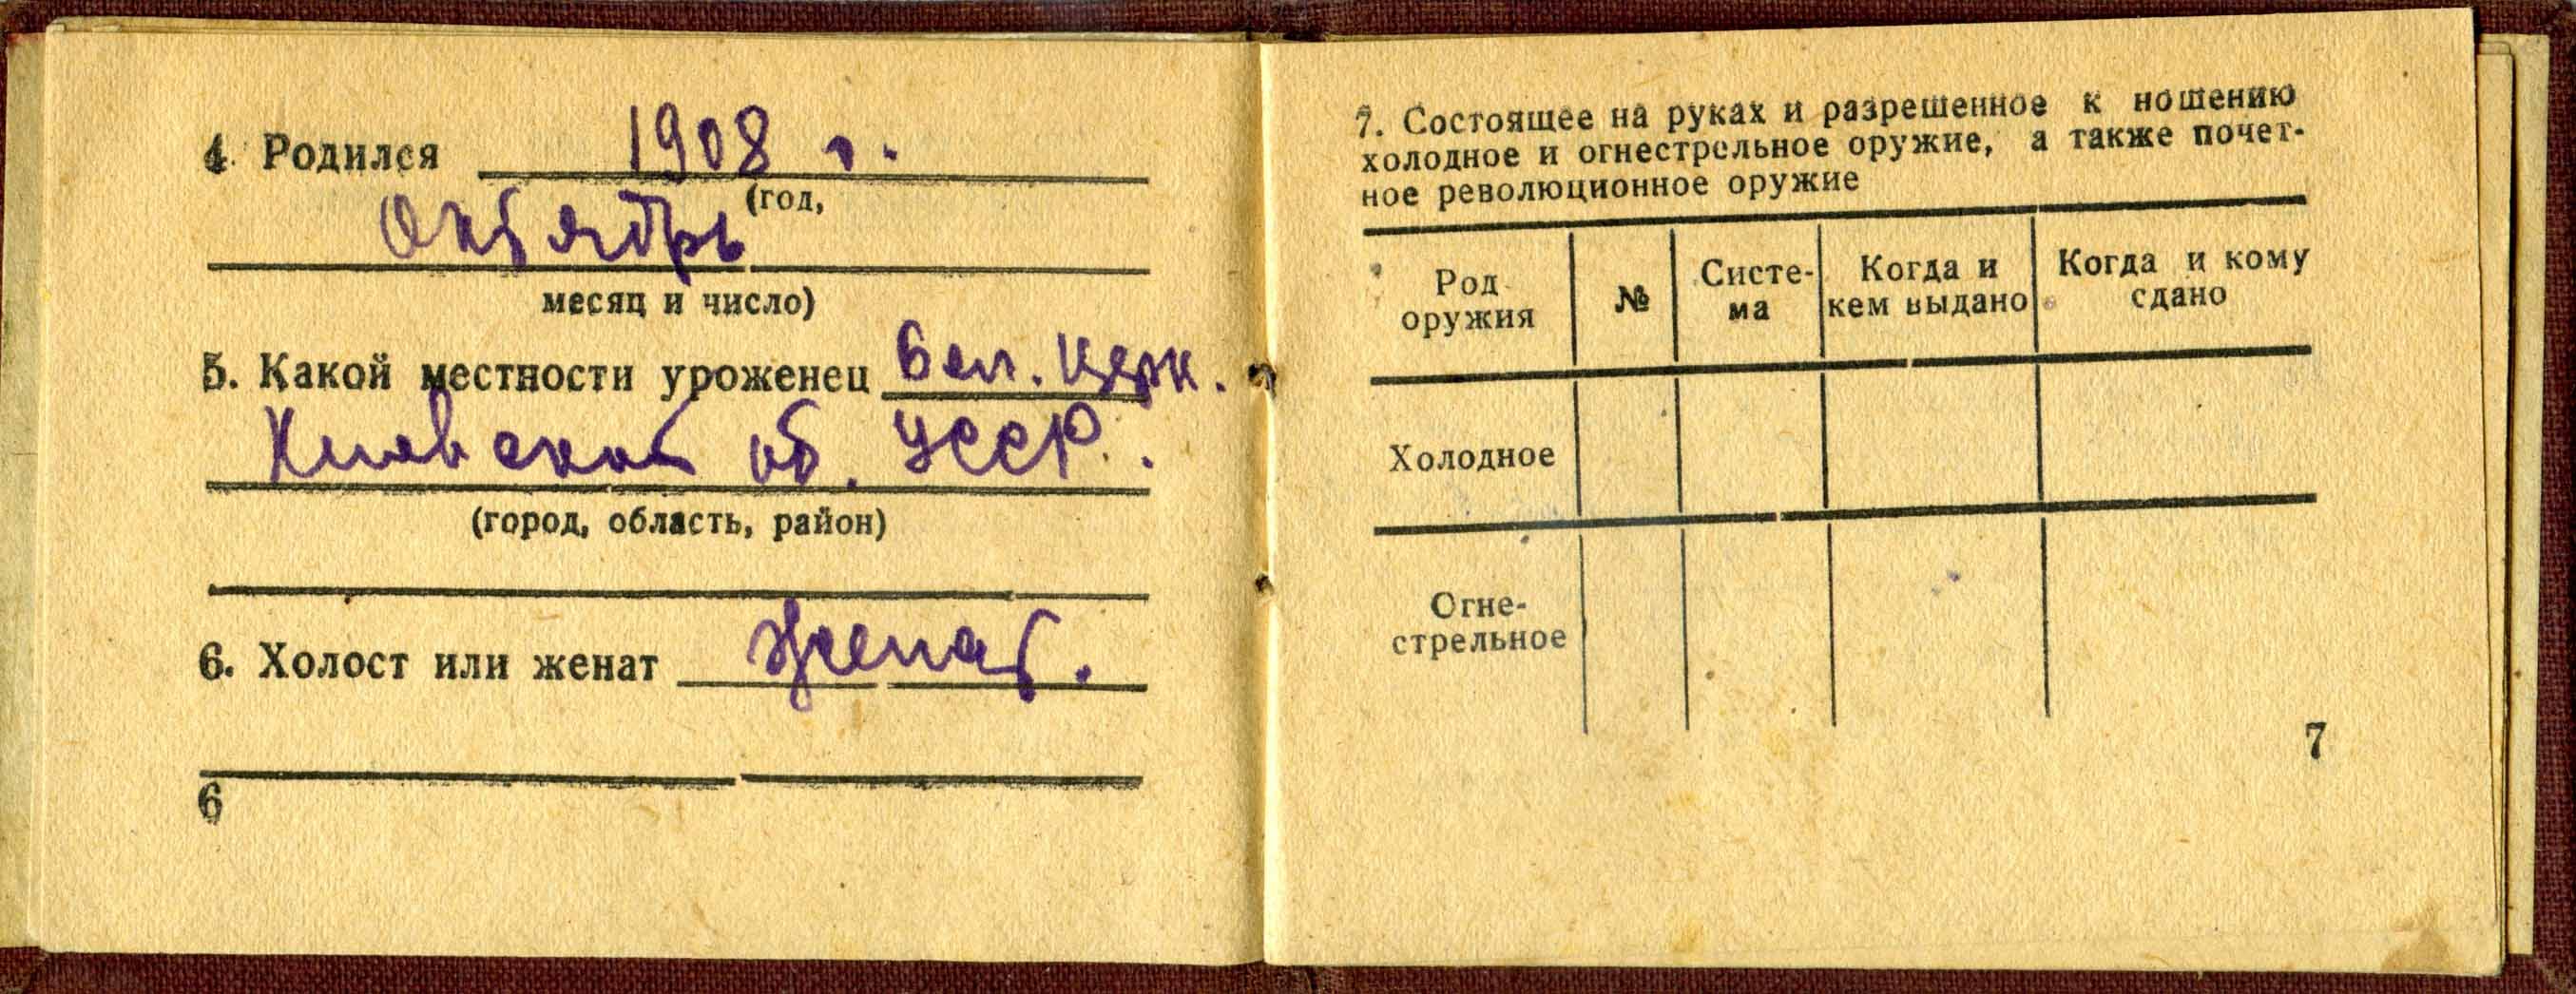 4. Родился 1908 г.
(год,
Октябрь
месяц и число)
5. Какой местности уроженец Бел. Церк.
Киевской об. УССР.
(город, область, район)
6. Холост или женат Женат.
6
7. Состоящее на руках и разрешенное к ношению
холодное и огнестрельное оружие, а также почет-
ное революционное оружие
Род оружия
№
Систе-
ма
Когда и
кем выдано
Когда и кому
сдано
Холодное
Огне-
стрельное
7